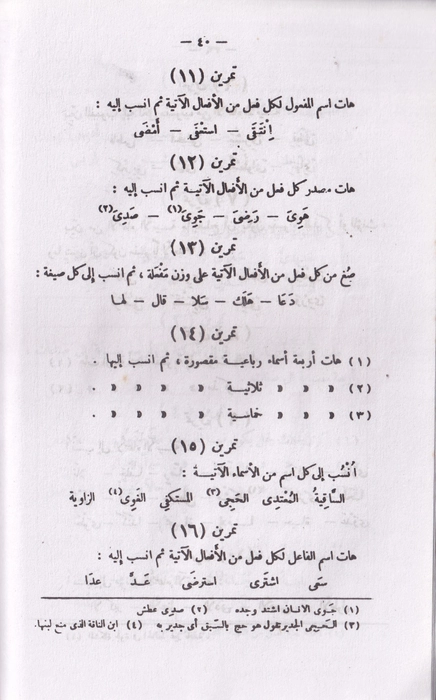 — ٤٠ —
تمرين (١١)
هات اسم المفعول لكل فعل من الأفعال الآتية ثم انسب إليه :
اِنْتَقَى — استغنى — أمْضَى
تمرين (١٢)
هات مصدر كل فعل من الأفعال الآتيـة ثم انسب إليه :
هَوِىَ — رَضِىَ — جَوِىَ (١) — صَدِىَ (٢)
تمرين (١٣)
صُغ من كل فعل من الأفعال الآتية على وزن مَفْعَلة ، ثم انسب إلى كل صيغة :
دَعَا — هَلَكَ — سَلَا — قال — لها
تمرين (١٤)
(١) هات أربعة أسماء رباعية مقصورة ، ثم انسب إليها .
(٢) » » » ثلاثيـة » » » » .
(٣) » » » خماسية » » » » .
تمرين (١٥)
اُنْسُب إلى كل اسم من الأسماء الآتيـة :
السَّاقِيَة المُعْتَدِى الحَجِىْ (٣) المستكفِى الغَوِىْ (٤) الزاوية
تمرين (١٦)
هات اسم الفاعل لكل فعل من الأفعال الآتية ثم انسب إليه :
سَمَى اشترى استرضَى عَدَّ عدَا
(١) جَوِىَ الانسان اشتد وجده (٢) صدى عطش
(٣) الحَجِى الجدير تقول هو حج بالسبق أى جدير به (٤) ابن الناقة الذى منع لبنها .